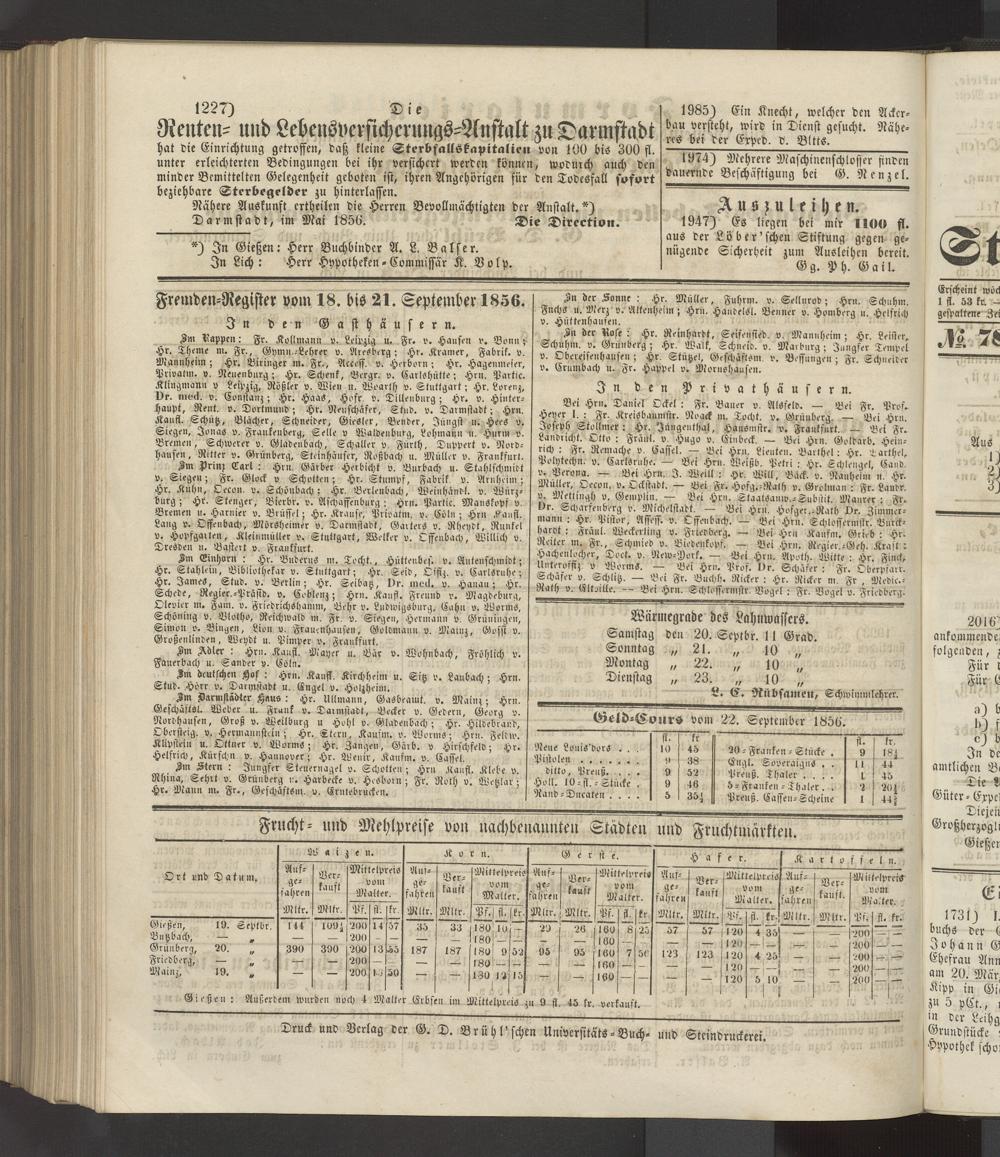 1227) Die
Renten- und Lebensversicherungs-Anstalt zu Darmstadt
hat die Einrichtung getroffen, daß kleine Sterbfallskapitalien von 100 bis 300 fl.
unter erleichterten Bedingungen bei ihr versichert werden können, wodurch auch den
minder Bemittelten Gelegenheit geboten ist, ihren Angehörigen für den Todesfall sofort
beziehbare Sterbegelder zu hinterlassen.
Nähere Auskunft ertheilen die Herren Bevollmächtigten der Anstalt.*)
Darmstadt, im Mai 1856. Die Direction.
*) In Gießen: Herr Buchbinder A. L. Balser.
In Lich: Herr Hypotheken-Commissär K. Volp.
1985) Ein Knecht, welcher den Acker-
bau versteht, wird in Dienst gesucht. Nähe-
res bei der Exped. d. Bltts.
1974) Mehrere Maschinenschlosser finden
dauernde Beschäftigung bei G. Menzel.
Auszuleihen.
1947) Es liegen bei mir 1100 fl.
aus der Löber'schen Stiftung gegen ge-
nügende Sicherheit zum Ausleihen bereit.
Gg. Ph. Gail.
Fremden-Register vom 18. bis 21. September 1856.
In den Gasthäusern.
Im Rappen: Fr. Kollmann v. Leipzig u. Fr. v. Hausen v. Bonn;
Hr. Theme m. Fr., Gymn.-Lehrer v. Aresberg; Hr. Kramer, Fabrik. v.
Mannheim; Hr. Biringer m. Fr., Access. v. Herborn; Hr. Hagenmeier,
Privatm. v. Neuenburg; Hr. Schenk, Bergr. v. Carlshütte; Hrn. Partic.
Klingmann v. Leipzig, Rößler v. Wien u. Woarth v. Stuttgart; Hr. Lorenz,
Dr. med. v. Constanz; Hr. Haas, Hofr. v. Dillenburg; Hr. v. Hinter-
haupt, Rent. v. Dortmund; Hr. Neuschäfer, Stud. v. Darmstadt; Hrn.
Kaufl. Schütz, Blächer, Schneider, Giesler, Bender, Jüngst u. Hees v.
Siegen, Jonas v. Frankenberg, Selle v. Waldenburg, Lohmann u. Hurm v.
Bremen, Schwerer v. Gladenbach, Schaller v. Fürth, Duppert v. Nord-
hausen, Ritter v. Grünberg, Steinhäuser, Roßbach u. Müller v. Frankfurt.
Im Prinz Carl: Hrn. Gärber Herbicht v. Burbach u. Stahlschmidt
v. Siegen; Fr. Glock v. Schotten; Hr. Stumpf, Fabrik. v. Arnheim;
Hr. Kuhn, Oecon. v. Schönbach; Hr. Berlenbach, Weinhändl. v. Würz-
burg; Hr. Stenger, Bierbr. v. Aschaffenburg; Hrn. Partic. Manskopf v.
Bremen u. Harnier v. Brüssel; Hr. Krause, Privatm. v. Cöln; Hrn. Kaufl.
Lang v. Offenbach, Mörsheimer v. Darmstadt, Garters v. Rheydt, Runkel
v. Hopfgarten, Kleinmüller v. Stuttgart, Welker v. Offenbach, Willich v.
Dresden u. Bastert v. Frankfurt.
Im Einhorn: Hr. Buderus m. Tocht., Hüttenbes. v. Antenschmidt;
Hr. Stahlein, Bibliothekar v. Stuttgart; Hr. Seid, Offiz. v. Carlsruhe;
Hr. James, Stud. v. Berlin; Hr. Seibatz, Dr. med. v. Hanau; Hr.
Schede, Regier.-Präsid. v. Coblenz; Hrn. Kaufl. Freund v. Magdeburg,
Olevier m. Fam. v. Friedrichshamm, Behr v. Ludwigsburg, Cahn v. Worms,
Schöning v. Vlotho, Reichwald m. Fr. v. Siegen, Hermann v. Grüningen,
Simon v. Bingen, Lion v. Frauenhausen, Goldmann v. Mainz, Gossi v.
Großenlinden, Weydt u. Pimper v. Frankfurt.
Im Adler: Hrn. Kaufl. Mayer u. Bär v. Wohnbach, Fröhlich v.
Fauerbach u. Sander v. Cöln.
Im deutschen Hof: Hrn. Kaufl. Kirchheim u. Sitz v. Laubach; Hrn.
Stud. Hörr v. Darmstadt u. Engel v. Holzheim.
Im Darmstädter Haus: Hr. Ullmann, Gasbeamt. v. Mainz; Hrn.
Geschäftsl. Weber u. Frank v. Darmstadt, Becker v. Gedern, Georg v.
Nordhausen, Groß v. Weilburg u. Hohl v. Gladenbach; Hr. Hildebrand,
Obersteig. v. Hermannstein; Hr. Stern, Kaufm. v. Worms; Hrn. Feldw.
Klipstein u. Ottner v. Worms; Hr. Jangen, Gärb. v. Hirschfeld; Hr.
Helfrich, Kürschn. v. Hannover; Hr. Wenir, Kaufm. v. Cassel.
Im Stern: Jungfer Steuernagel v. Schotten; Hrn. Kaufl. Klebe v.
Rhina, Sehrt v. Grünberg u. Harbecke v. Hosborn; Fr. Roth v. Wetzlar;
Hr. Mann m. Fr., Geschäftsm. v. Erntebrücken.
In der Sonne: Hr. Müller, Fuhrm. v. Sellnrod; Hrn. Schuhm.
Fuchs u. Merz v. Altenheim; Hrn. Handelsl. Benner v. Homberg u. Helfrich
v. Hüttenhausen.
In der Rose: Hr. Reinhardt, Seifensied. v. Mannheim; Hr. Leister,
Schuhm. v. Grünberg; Hr. Walk, Schneid. v. Marburg; Jungfer Tempel
v. Obereisenhausen; Hr. Stützel, Geschäftsm. v. Bessungen; Fr. Schneider
v. Crumbach u. Fr. Happel v. Mornshausen.
In den Privathäusern.
Bei Hrn. Daniel Ockel: Fr. Bauer v. Alsfeld. — Bei Fr. Prof.
Heyer I.: Fr. Kreisbaumstr. Noack m. Tocht. v. Grünberg. — Bei Hrn.
Joseph Stollmer: Hr. Jüngenthal, Hausmstr. v. Frankfurt. — Bei Fr.
Landricht. Otto: Fräul. v. Hugo v. Einbeck. — Bei Hrn. Goldarb. Hein-
rich: Fr. Remache v. Cassel. — Bei Hrn. Lieuten. Barthel: Hr. Barthel,
Polytechn. v. Carlsruhe. — Bei Hrn. Weißb. Petri: Hr. Schlengel, Cand.
v. Verona. — Bei Hrn. J. Weill: Hr. Will, Bäck. v. Nauheim u. Hr.
Müller, Oecon. v. Ockstadt. — Bei Fr. Hofg.-Rath v. Grolman: Fr. Landr.
v. Mettingh v. Gemplin. — Bei Hrn. Staatsanw.-Substit. Maurer: Fr.
Dr. Scharfenberg v. Michelstadt. — Bei Hrn. Hofger.-Rath Dr. Zimmer-
mann: Hr. Pistor, Assess. v. Offenbach. — Bei Hrn. Schlossermstr. Burck-
hardt: Fräul. Weckerling v. Friedberg. — Bei Hrn. Kaufm. Grieb: Hr.
Reiter m. Fr., Schmied v. Biedenkopf. — Bei Hrn. Regier.-Geh. Kraft:
Hachenlocher, Doct. v. New-York. — Bei Hrn. Apoth. Witte: Hr. Finck,
Unteroffiz. v. Worms. — Bei Hrn. Prof. Dr. Schäfer: Fr. Oberpfarr.
Schäfer v. Schlitz. — Bei Fr. Buchh. Ricker: Hr. Ricker m. Fr., Medic.-
Rath v. Eltville. — Bei Hrn. Schlossermstr. Vogel: Fr. Vogel v. Friedberg.
Wärmegrade des Lahnwassers.
Samstag den 20. Septbr. 11 Grad.
Sonntag „ 21. „ 10 „
Montag „ 22. „ 10 „
Dienstag „ 23. „ 10 „
L. C. Rübsamen, Schwimmlehrer.
Geld-Cours vom 22. September 1856.
fl. kr. fl. kr.
Neue Louisdors . . . 10 45 20-Franken-Stücke . 9 18½
Pistolen . . . . . . 9 38 Engl. Soveraigns . . 11 44
ditto, Preuß. . . . 9 52 Preuß. Thaler . . . . 1 45
Holl. 10-fl.-Stücke . 9 46 5-Franken-Thaler . . 2 20½
Rand-Ducaten . . . . 5 35½ Preuß. Cassen-Scheine 1 44¾
Frucht- und Mehlpreise von nachbenannten Städten und Fruchtmärkten.
Ort und Datum. Waizen. Korn. Gerste. Hafer. Kartoffeln.
Auf-gefahren Ver-kauft Mittelpreis vom Malter. Auf-gefahren Ver-kauft Mittelpreis vom Malter. Auf-gefahren Ver-kauft Mittelpreis vom Malter. Auf-gefahren Ver-kauft Mittelpreis vom Malter. Auf-gefahren Ver-kauft Mittelpreis vom Malter.
Mltr. Mltr. Pf. fl. kr. Mltr. Mltr. Pf. fl. kr. Mltr. Mltr. Pf. fl. kr. Mltr. Mltr. Pf. fl. kr. Mltr. Mltr. Pf. fl. kr.
Gießen, 19. Septbr. 144 109½ 200 14 57 35 33 180 10 — 29 26 160 8 25 57 57 120 4 35 — — 200 — —
Butzbach, — „ — — 200 — — — — 180 — — — — 160 — — — — 120 — — — — 200 — —
Grünberg, 20. „ 390 390 200 13 55 187 187 180 9 52 95 95 160 7 56 123 123 120 4 25 — — 200 — —
Friedberg, — „ — — 200 — — — — 180 — — — — 160 — — — — 120 — — — — 200 — —
Mainz, 19. „ — — 200 13 50 — — 180 12 15 — — 160 — — — — 120 5 10 — — 200 — —
Gießen: Außerdem wurden noch 4 Malter Erbsen im Mittelpreis zu 9 fl. 45 kr. verkauft.
Druck und Verlag der G. D. Brühl'schen Universitäts-Buch- und Steindruckerei.
St
Erscheint wöch
1 fl. 53 kr. —
gespaltene Zei
№ 78
Aus
1)
2)
3)
2016
ankommende
folgenden,
Für
Für
a)
b)
c)
In de
amtlichen
Die
Güter-Expe
Diejen
Großherzogli
Gießen
1731)
buchs der
Johann
Ehefrau Ann
am 20. Mär
Kipp in Gi
zu 5 pCt.,
in der Leihg
Grundstücke
Hypothek scho